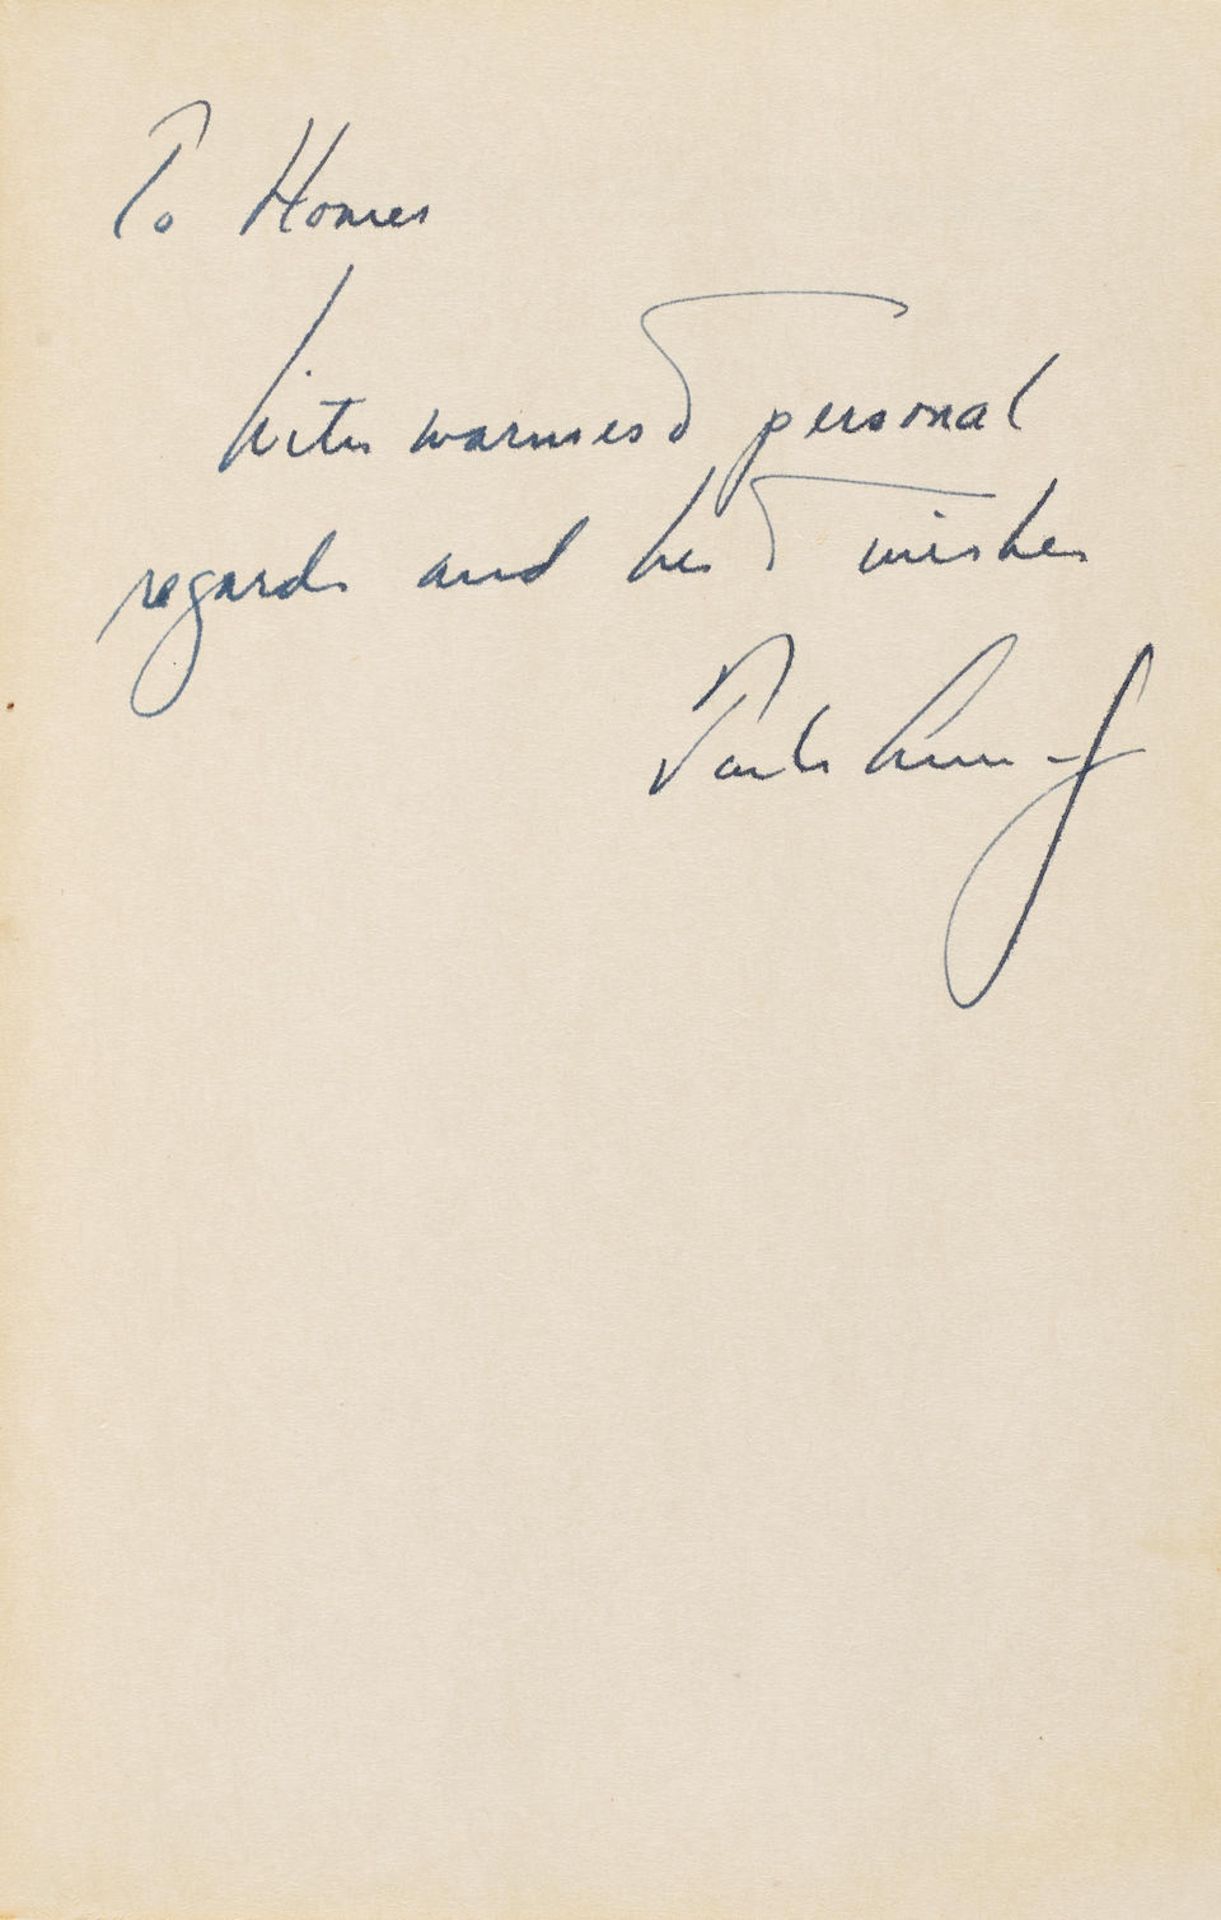 To Homer
with warmest personal
regards and best wishes